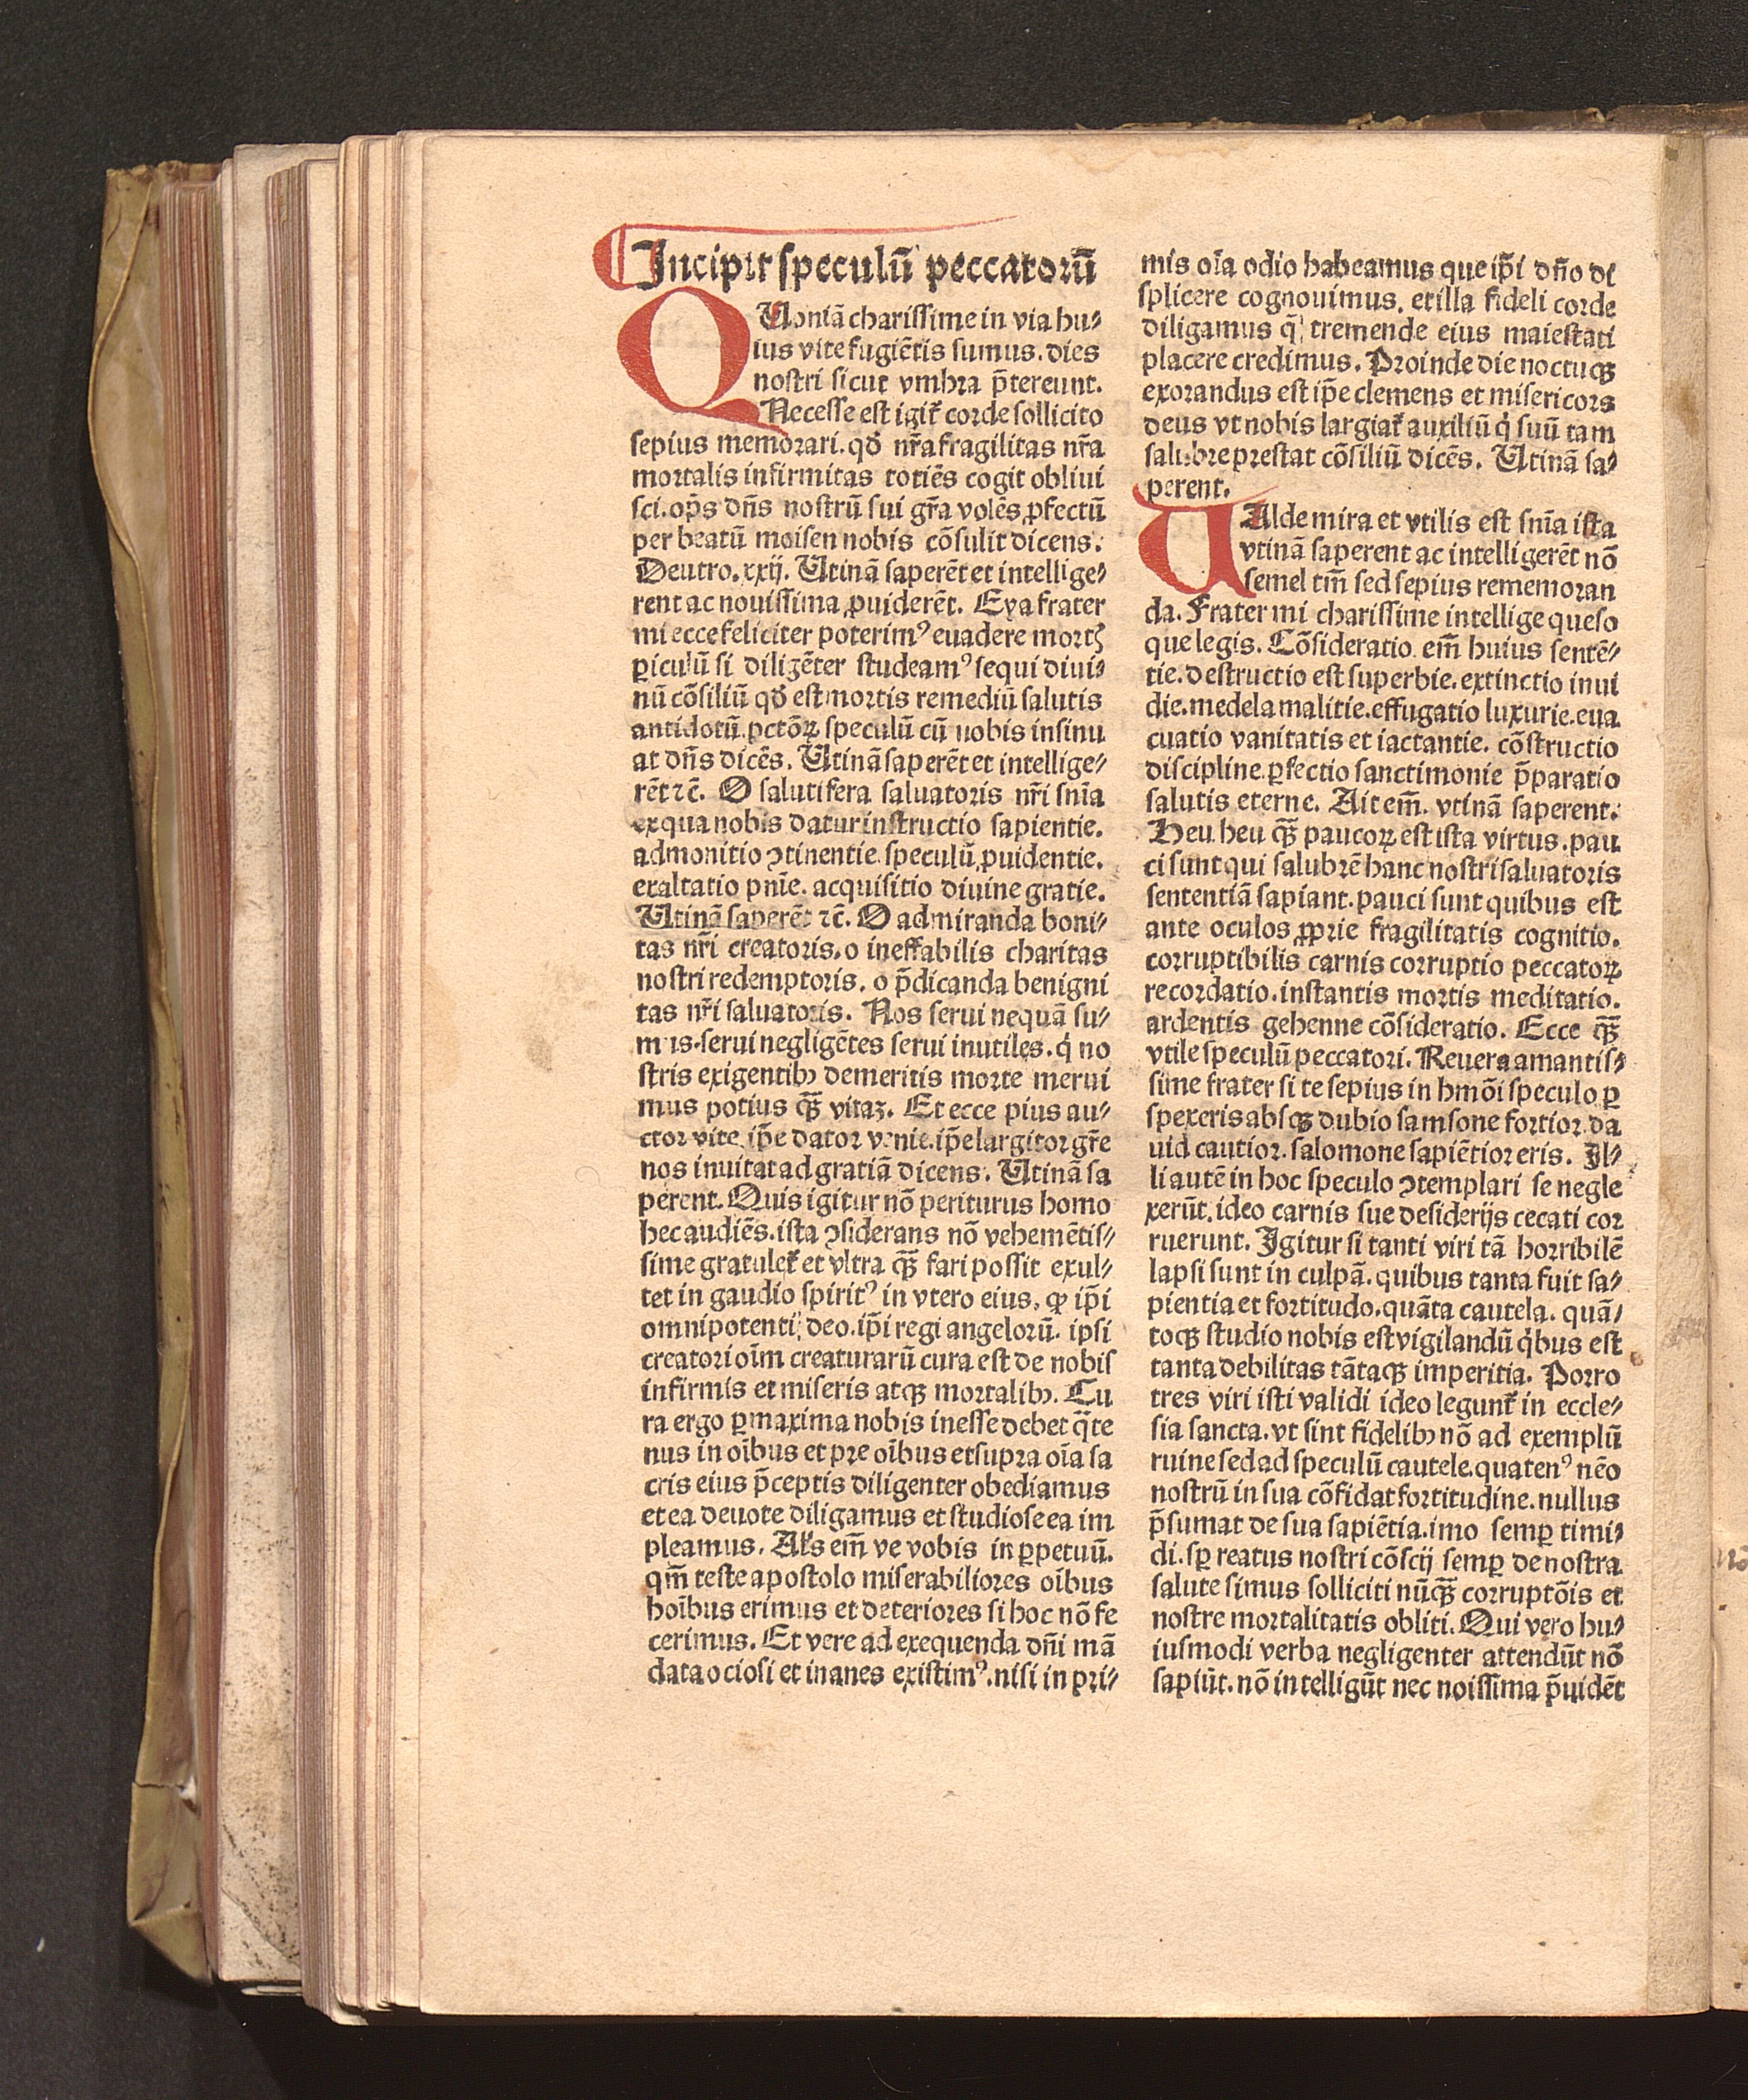 Incipit speculū peccatorū
QUoniā charissime in via hu⸗
ius vite fugiētis sumus. dies
nostri sicut vmbra p̄tereunt.
Necesse est igit̄ corde sollicito
sepius memorari. qđ nr̄a fragilitas nr̄a
mortalis infirmitas totiēs cogit obliui
sci. op̄s dn̄s nostrū sui gr̄a volēs ꝓfectū
per beatū moisen nobis cōsulit dicens.
Deutro. xxij. Utinā saperēt et intellige⸗
rent ac nouissima ꝓuiderēt. Eya frater
mi ecce feliciter poterimꝰ euadere mortꝭ
ꝑiculū si diligēter studeamꝰ sequi diui⸗
nū cōsiliū qđ est mortis remediū salutis
antidotū. pctōꝝ speculū cū nobis insinu
at dn̄s dicēs. Utinā saperēt et intellige⸗
rēt ⁊c̄. O salutifera saluatoris nr̄i snīa
ex qua nobis datur instructio sapientie.
admonitio ↄtinentie. speculū ꝓuidentie.
exaltatio pnīe. acquisitio diuine gratie.
Utinā saperēt ⁊c̄. O admiranda boni⸗
tas nr̄i creatoris. o ineffabilis charitas
nostri redemptoris. o p̄dicanda benigni
tas nr̄i saluatoris. Nos serui nequā su⸗
mus. serui negligētes serui inutiles. q̇ no
stris exigentibꝫ demeritis morte merui
mus potius qꝫ̄ vitaꝫ. Et ecce pius au⸗
ctor vite. ip̄e dator venie. ip̄e largitor gr̄e
nos inuitat ad gratiā dicens. Utinā sa
perent. Quis igitur nō periturus homo
hec audiēs. ista ↄsiderans nō vehemētis⸗
sime gratulet̄ et vltra qꝫ̄ fari possit exul⸗
tet in gaudio spiritꝰ in vtero eius, ꝙ ip̄i
omnipotenti deo. ip̄i regi angelorū. ipsi
creatori oīm creaturarū cura est de nobis
infirmis et miseris atqꝫ mortalibꝫ. Cu
ra ergo ꝑmaxima nobis inesse debet q̄te
nus in oībus et pre oībus et supra oīa sa
cris eius p̄ceptis diligenter obediamus
et ea deuote diligamus et studiose ea im
pleamus. Alʼs em̄ ve vobis in ꝑpetuū.
qm̄ teste apostolo miserabiliores oībus
hoībus erimus et deteriores si hoc nō fe
cerimus. Et vere ad exequenda dn̄i mā
data ociosi et inanes existimꝰ. nisi in pri⸗
mis oīa odio habeamus que ip̄i dn̄o di
splicere cognouimus. et illa fideli corde
diligamus q̄ tremende eius maiestati
placere credimus. Proinde die noctuqꝫ
exorandus est ip̄e clemens et misericors
deus vt nobis largiat̄ auxiliū q̇ suū tam
salubre prestat cōsiliū dicēs. Utinā sa⸗
perent.
UAlde mira et vtilis est snīa ista
vtinā saperent ac intelligerēt nō
semel tm̄ sed sepius rememoran
da. Frater mi charissime intellige queso
que legis. Cōsideratio em̄ huius sentē⸗
tie. destructio est superbie. extinctio inui
die. medela malitie. effugatio luxurie. eua
cuatio vanitatis et iactantie. cōstructio
discipline. ꝑfectio sanctimonie p̄paratio
salutis eterne. Ait em̄. vtinā saperent.
Heu heu qꝫ̄ paucoꝝ est ista virtus. pau
ci sunt qui salubrē hanc nostri saluatoris
sententiā sapiant. pauci sunt quibus est
ante oculos ꝓprie fragilitatis cognitio.
corruptibilis carnis corruptio peccatoꝝ
recordatio. instantis mortis meditatio.
ardentis gehenne cōsideratio. Ecce qꝫ̄
vtile speculū peccatori. Reuera amantis⸗
sime frater si te sepius in hmōi speculo ꝑ
spexeris absqꝫ dubio samsone fortior. da
uid cautior. salomone sapiētior eris. Il⸗
li autē in hoc speculo ↄtemplari se negle
xerūt. ideo carnis sue desiderijs cecati cor
ruerunt. Igitur si tanti viri tā horribilē
lapsi sunt in culpā. quibus tanta fuit sa⸗
pientia et fortitudo. quāta cautela. quā⸗
toqꝫ studio nobis est vigilandū q̇bus est
tanta debilitas tātaqꝫ imperitia. Porro
tres viri isti validi ideo legunt̄ in eccle⸗
sia sancta. vt sint fidelibꝫ nō ad exemplū
ruine sed ad speculū cautele. quatenꝰ nēo
nostrū in sua cōfidat fortitudine. nullus
p̄sumat de sua sapiētia. imo semꝑ timi⸗
di. sꝑ reatus nostri cōscij semꝑ de nostra
salute simus solliciti nūqꝫ̄ corruptōis et
nostre mortalitatis obliti. Qui vero hu⸗
iusmodi verba negligenter attendūt nō
sapiūt. nō intelligūt nec noissima p̄uidēt